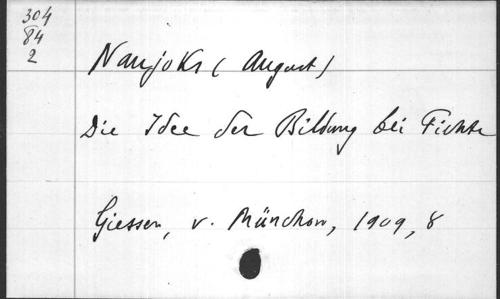 304
84
2
Naujoks (August)
Die Idee der Bildung bei Fichte
Giessen, v. Münchow, 1909, 8